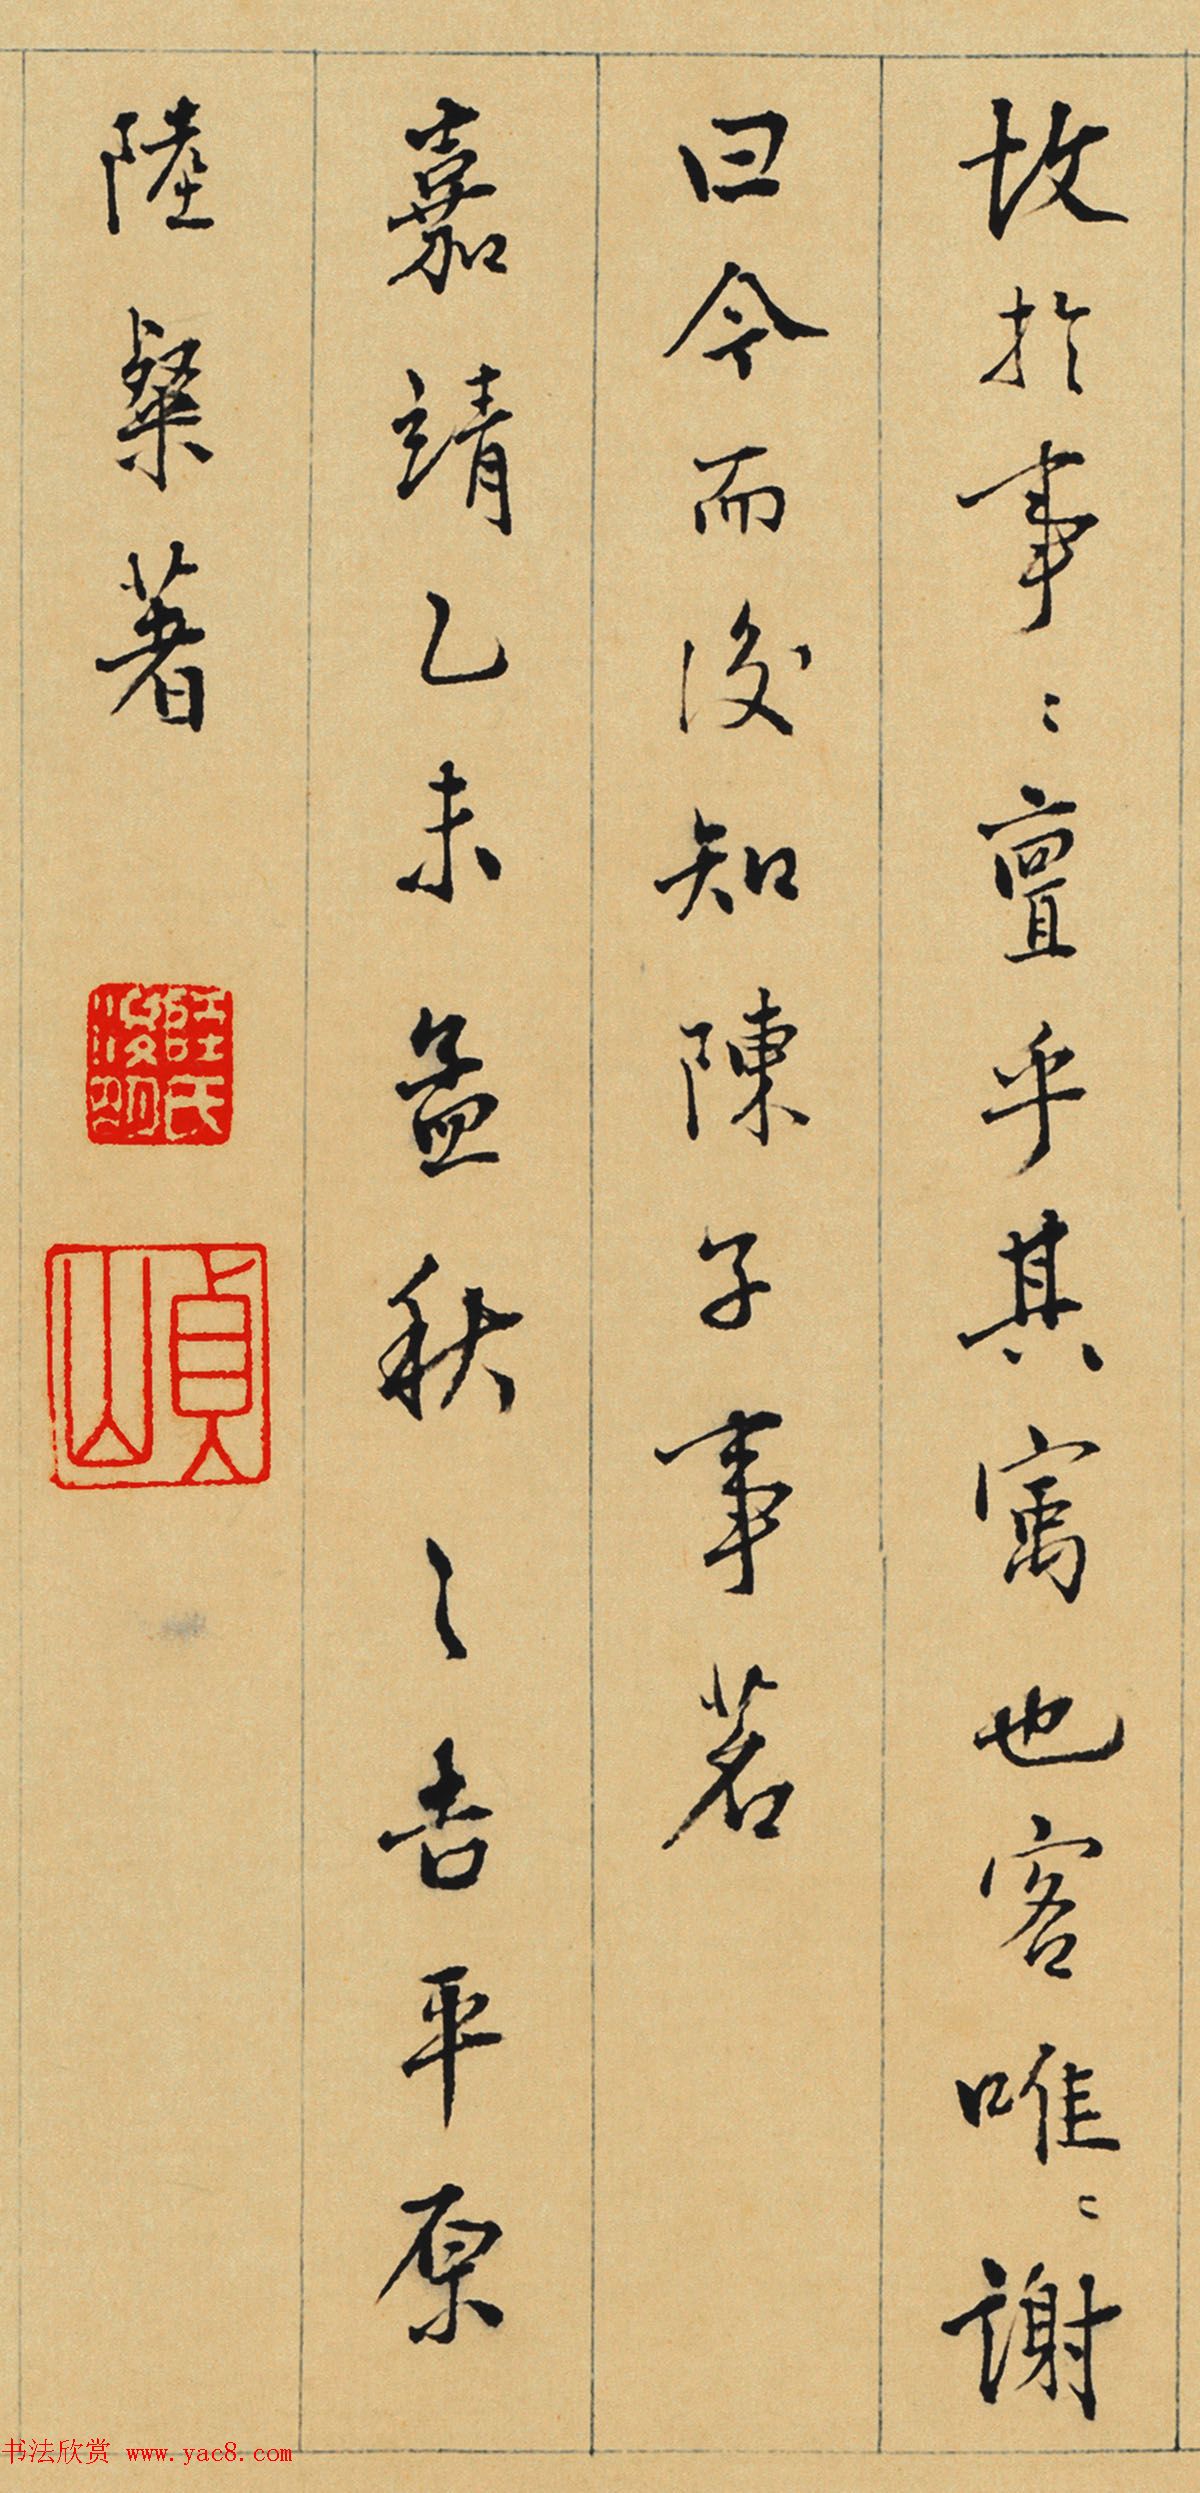 故於事〻亶乎其寓也客唯〻謝
曰今而後知陳子事茗
嘉靖乙未孟秋之吉平原
陸粲著
陸氏浚明
貞山
书法欣赏 www.yac8.com